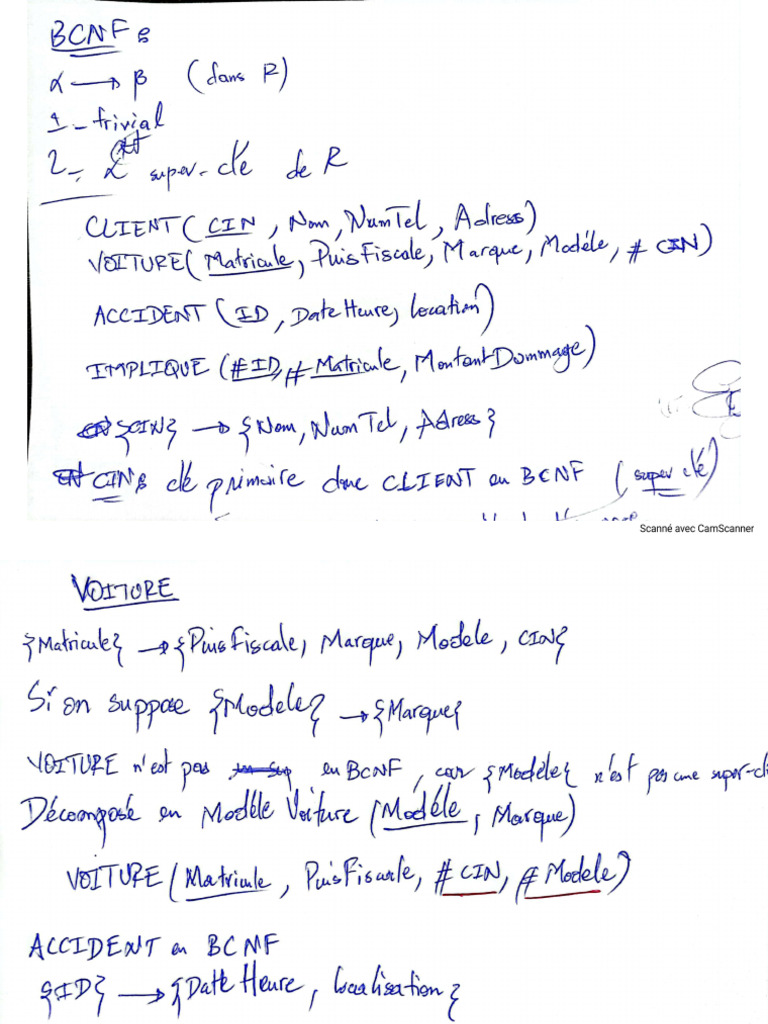 BCNF :
α → β (dans R)
1 - trivial
2 - α est super-clé de R
CLIENT ( CIN , Nom, NumTel, Adress)
VOITURE( Matricule, PuisFiscale, Marque, Modéle, # CIN)
ACCIDENT (ID, DateHeure, location)
IMPLIQUE (#ID, # Matricule, MontantDommage)
{CIN} → {Nom, NumTel, Adress}
CIN : clé primaire donc CLIENT en BCNF (super clé)
Scanné avec CamScanner
VOITURE
{Matricule} → {PuisFiscale, Marque, Modele, CIN}
Si on suppose {Modele} → {Marque}
VOITURE n'est pas en BCNF, car {Modéle} n'est pas une super-cl
Décomposé en Modèle Voiture (Modéle, Marque)
VOITURE (Matricule, PuisFiscale, # CIN, # Modele)
ACCIDENT en BCNF
{ID} → {Date Heure, localisation}